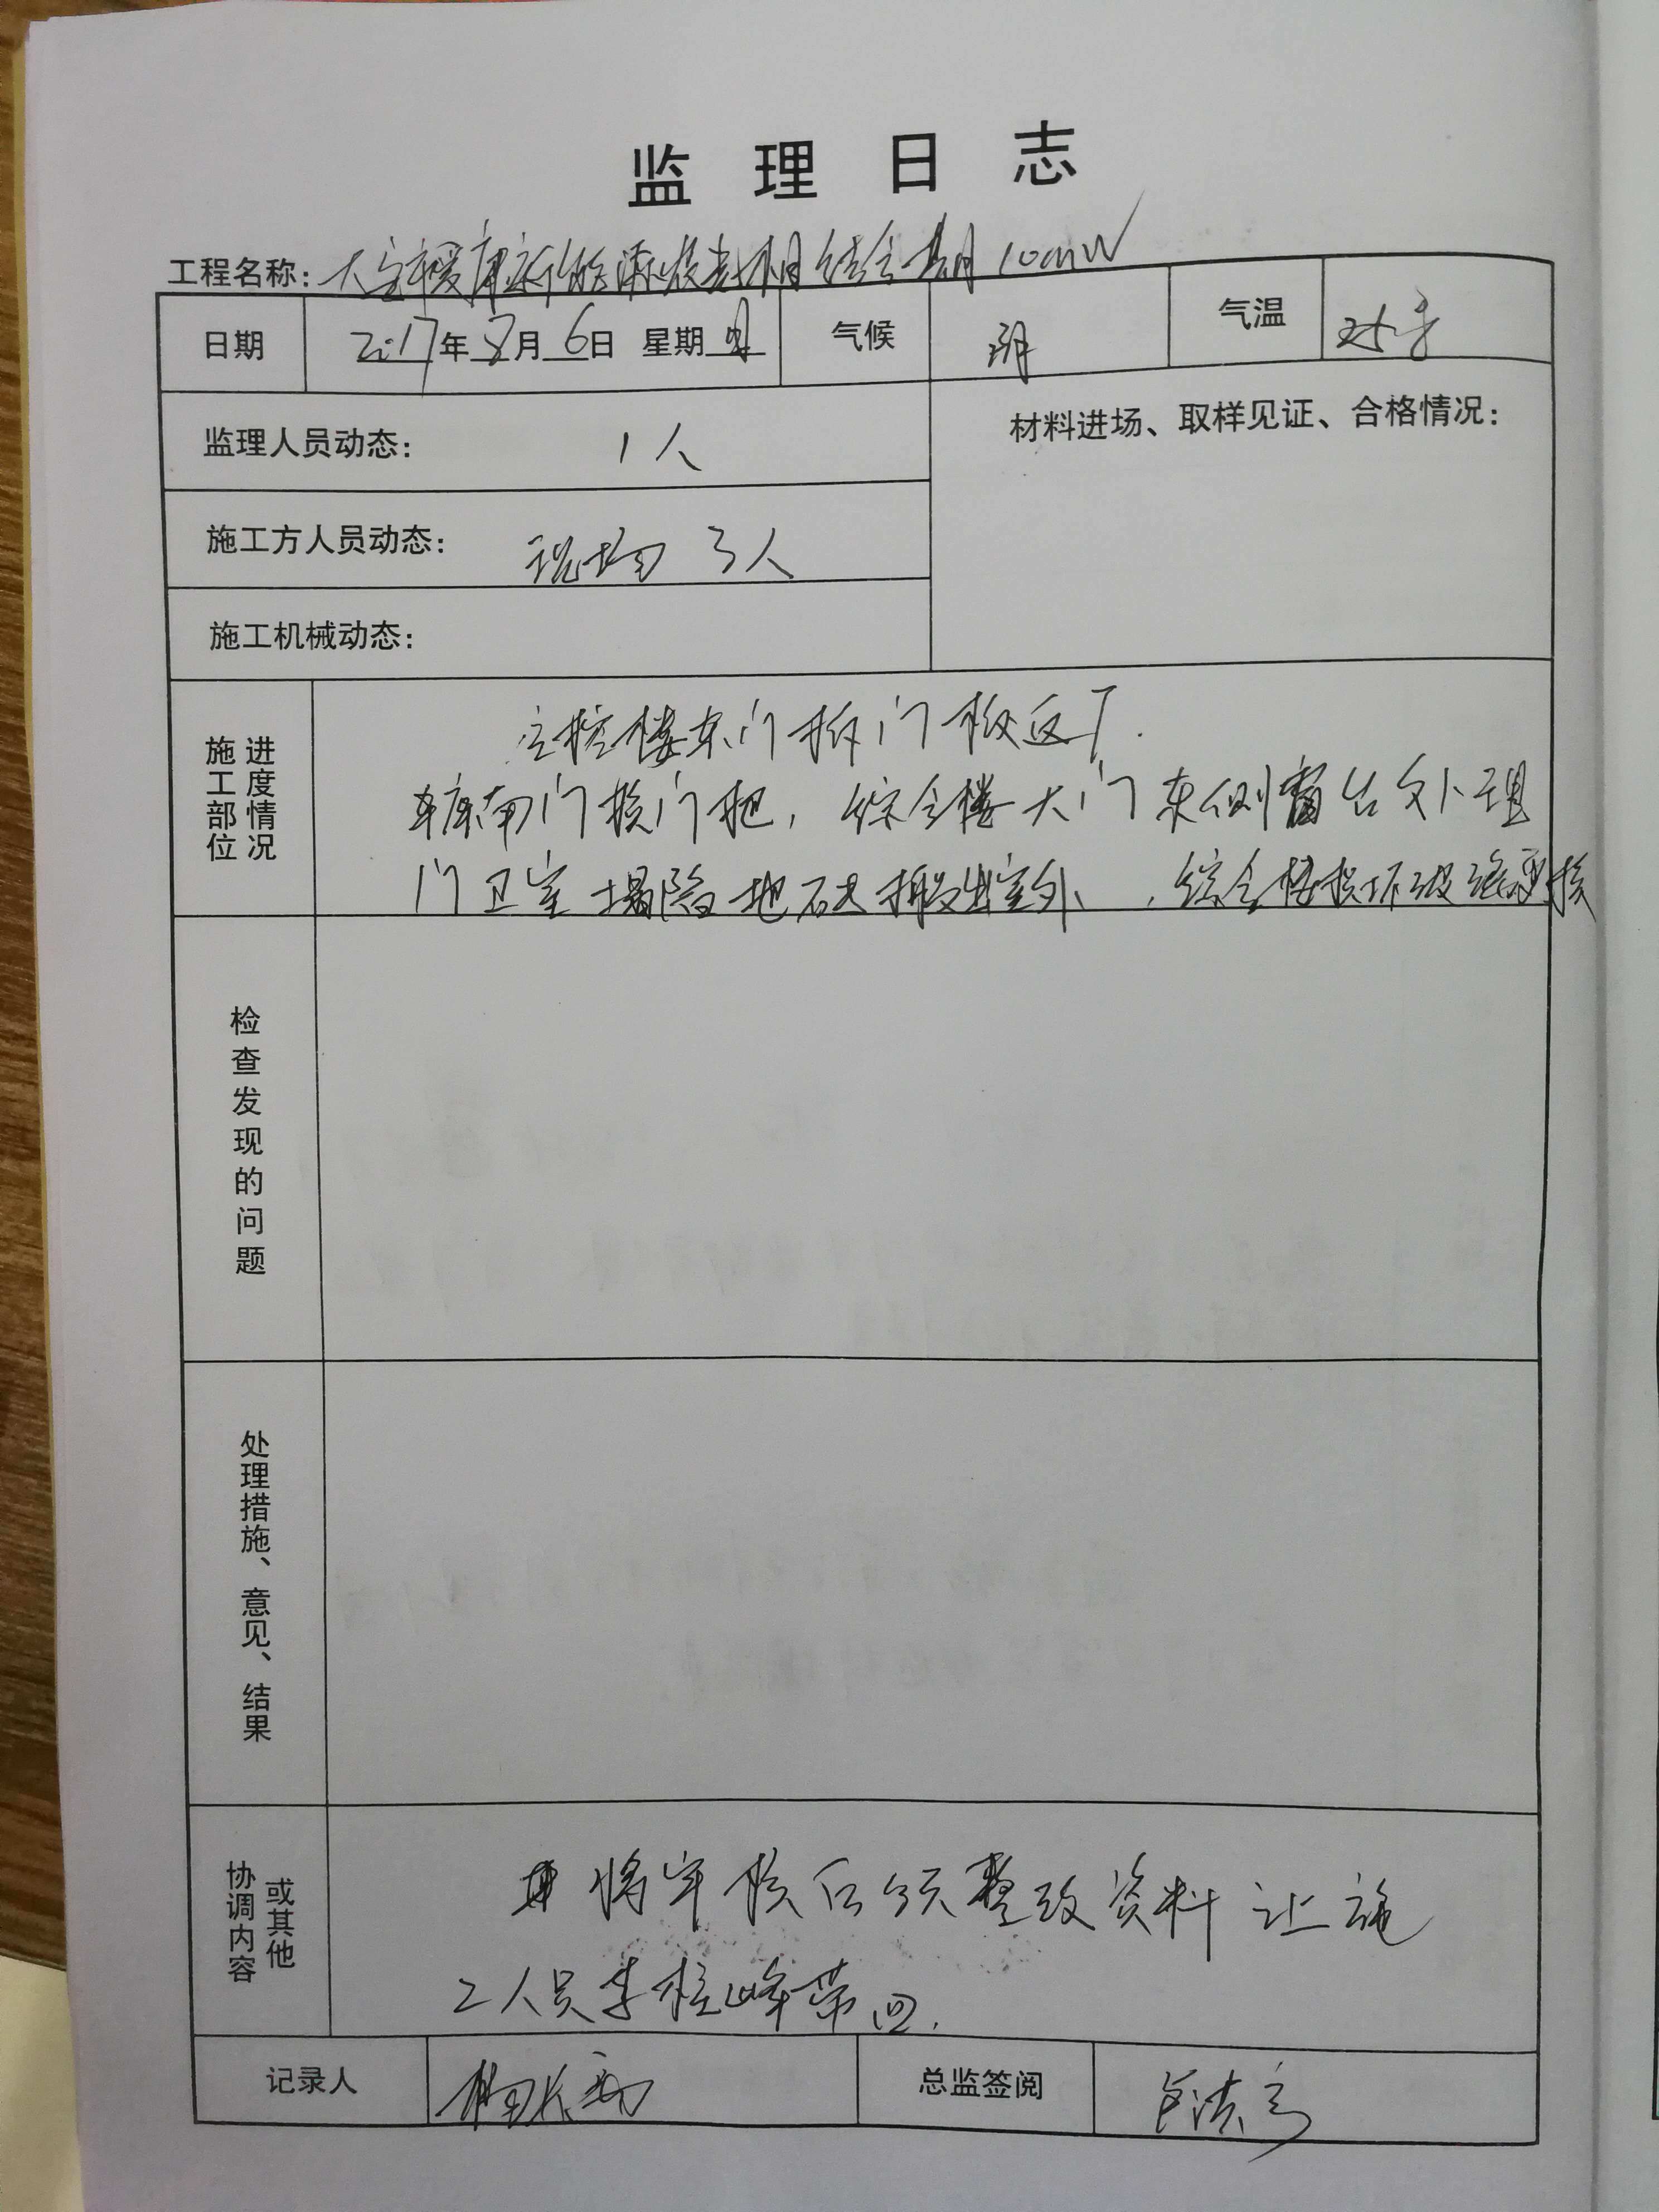 监理日志
工程名称: 大 新能源 农光 相结合 10mW
日期 2017年8月6日 星期日 气候 阴 气温
监理人员动态: 1人 材料进场、取样见证、合格情况:
施工方人员动态: 现场 3人
施工机械动态:
施工部位 进度情况
主控楼东门拆门板返厂.
车库南门换门把, 综合楼大门东侧窗台处理
门卫室塌陷地砖搬出室外, 综合楼损坏玻璃更换
检查发现的问题
处理措施、意见、结果
协调内容 或其他
将年 整改资料让施
工人员李 峰带回.
记录人 总监签阅